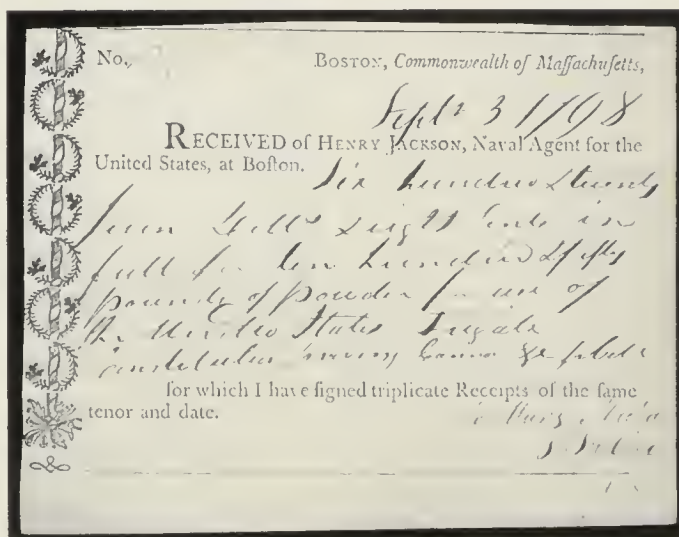 No.
BOSTON, Commonwealth of Maſſachuſetts,
Septr 3 1798
RECEIVED of HENRY JACKSON, Naval Agent for the
United States, at Boſton.
Six hundred & twenty
Seven Dolls Eight Cents in
full for ten hundred & fifty
pounds of powder for use of
the United States Frigate
Constitution
for which I have ſigned triplicate Receipts of the ſame
tenor and date.